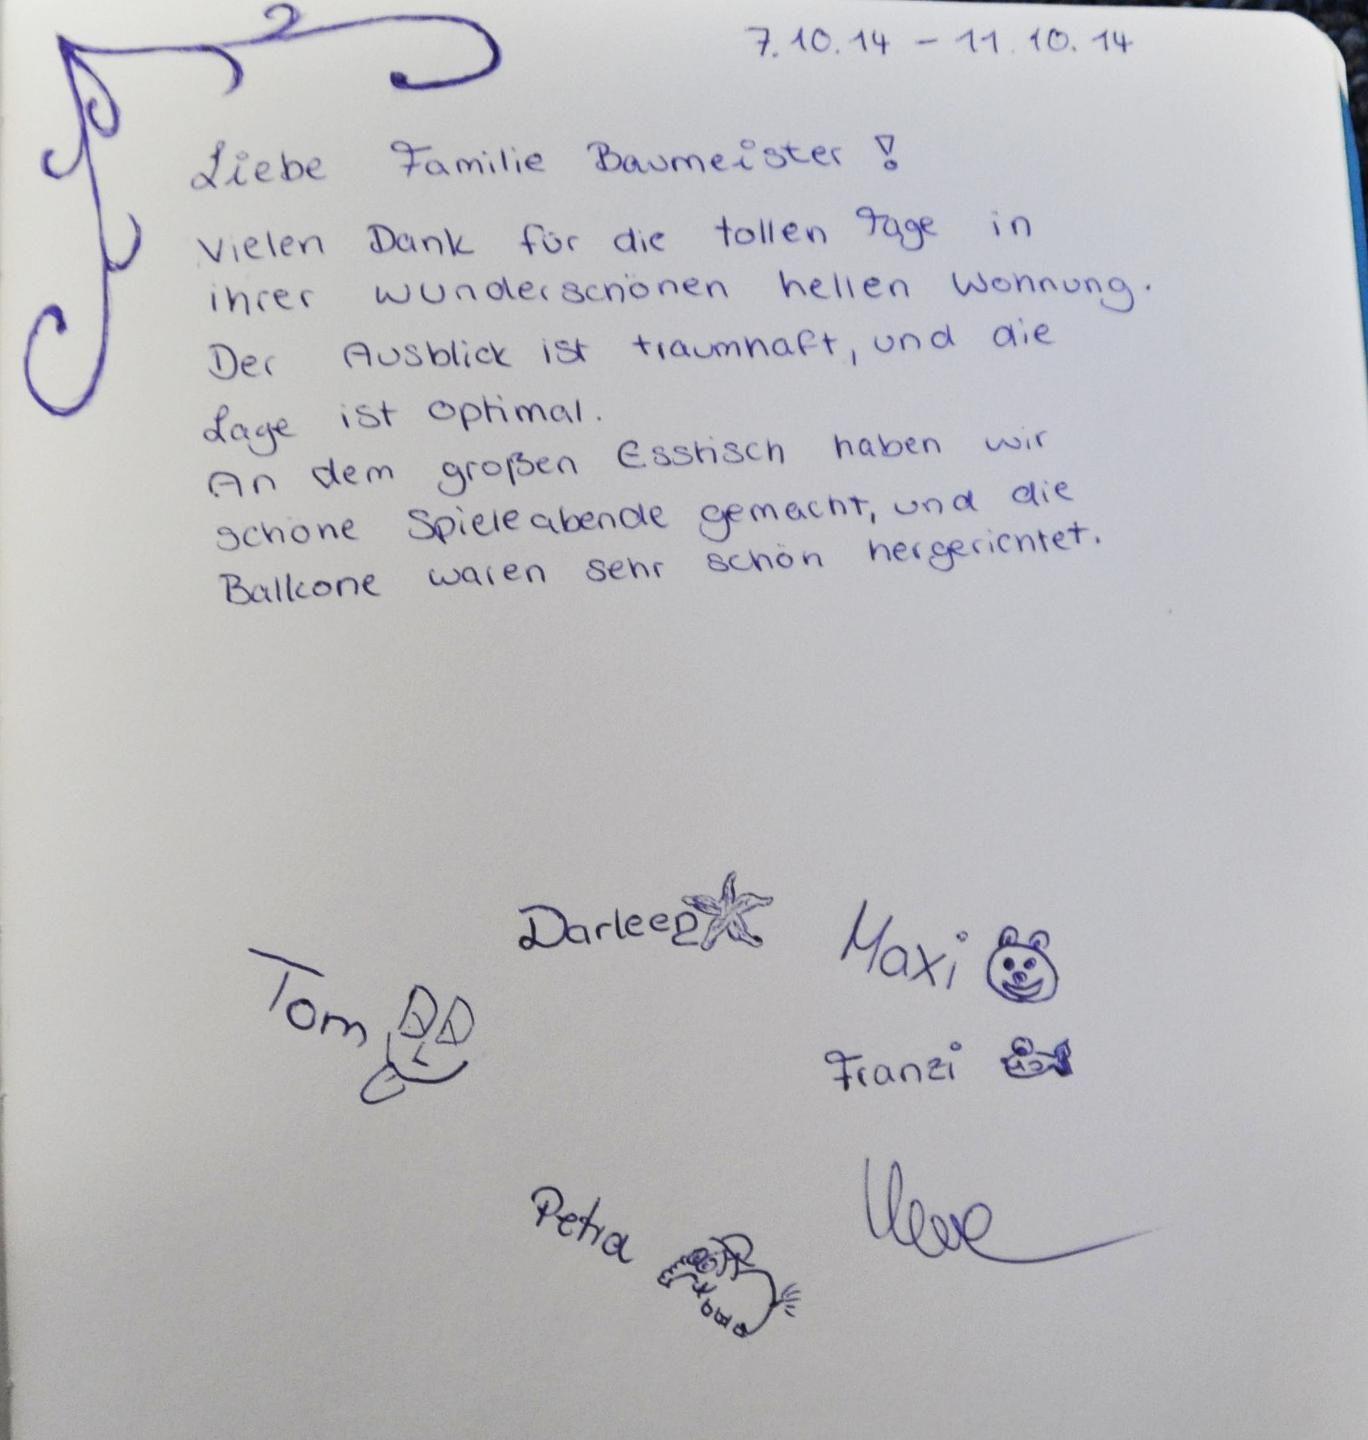 7.10.14 - 11.10.14
Liebe Familie Baumeister!
Vielen Dank für die tollen Tage in
ihrer wunderschönen hellen Wohnung.
Der Ausblick ist traumhaft, und die
Lage ist optimal.
An dem großen Esstisch haben wir
schöne Spieleabende gemacht, und die
Balkone waren sehr schön hergerichtet.
Darleen
Maxi
Tom
Franzi
Petra
Uwe